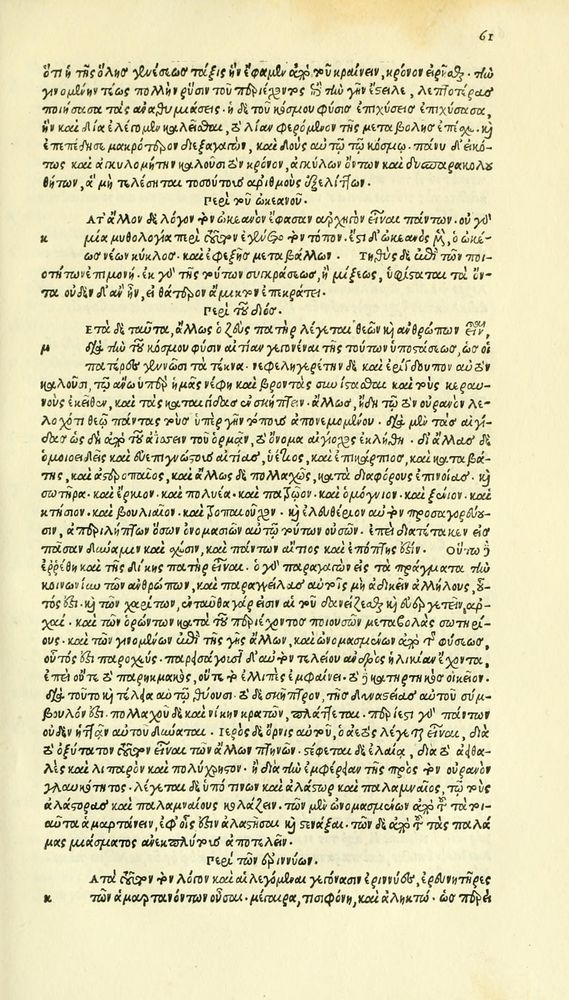 61
ὅτι ἡ τῆς ὅλης γενέσεως τάξις ἣν ἔφαμεν ἀπὸ τοῦ κραίνειν, κρόνον εἰρῆσθαι. τὴν
γινομένην τέως πολλὴν ῥύσιν τοῦ περιέχοντος ἐπὶ τὴν γῆν ἔστειλε, λεπτοτέρας
ποιήσασα τὰς ἀναθυμιάσεις. ἡ δὲ τοῦ κόσμου φύσις ἐπισχύσασα,
ἣν καὶ δία ἐλέγομεν καλεῖσθαι, τὸ λίαν φερόμενον τῆς μεταβολῆς ἐπέσχε. καὶ
ἐπεπέδησε μακροτέραν διεξαγωγὴν, καὶ δοὺς αὐτῷ τῷ κόσμῳ. πάνυ δ' εἰκό-
τως καὶ ἀγκυλομήτην καλοῦσι τὸν κρόνον, ἀγκύλων ὄντων καὶ δυσπαρακολου
θήτων, ἃ μητιάσεται τοσούτους ἀριθμοὺς ἐξελίττων.
Περὶ τοῦ ὠκεανοῦ.
ΑΤ' ἄλλον δὲ λόγον τὸν ὠκεανὸν ἔφασαν ἀρχηγὸν εἶναι πάντων. οὐ γὰρ
κ μία μυθολογία περὶ τοῦτον ἐγένετο τὸν τόπον. ἔστι δ' ὠκεανὸς μὲν, ὁ ὠκέ-
ως νέων κύκλος. καὶ ἐφεξῆς μεταβάλλων. Τηθὺς δὲ ἡ ἐπὶ τῶν ποι-
οτήτων ἐπιμονή. ἐκ γὰρ τῆς τούτων συγκράσεως, ἢ μίξεως, ὑφίσταται τὰ ὄν-
τα οὐδὲν δ' ἂν ἦν, εἰ θάτερον ἄμικτον ἐπεκράτει.
Περὶ τοῦ διός.
ΕΤὰ δὲ ταῦτα, ἄλλως ὁ ζεὺς πατὴρ λέγεται θεῶν καὶ ἀνθρώπων εἶναι,
μ διὰ τὸ τὴν τοῦ κόσμου φύσιν αἰτίαν γεγονέναι τῆς τούτων ὑποστάσεως, ὡς οἱ
πατέρες γεννῶσι τὰ τέκνα. νεφεληγερέτην δὲ καὶ ἐρίγδουπον αὐτὸν
καλοῦσι, τῷ ἄνω ὑπὲρ ἡμᾶς νέφη καὶ βροντὰς συνίστασθαι καὶ τοὺς κεραυ-
νοὺς ἐκεῖθεν, καὶ τὰς καταιγίδας ἐνσκήπτειν. ἄλλως, ἤδη τῷ τὸν οὐρανὸν λε-
λογχότι θεῷ παντὸς τοῦ ὑπὲρ γῆν τόπου ἀπονεμομένου. διὰ μὲν τὰς αἰγί-
δας ὡς δὴ ἀπὸ τοῦ ἀΐσσειν τοῦ ὁρμᾶν, τὸ ὄνομα αἰγίοχος ἐκλήθη. δι' ἄλλας δὲ
ὁμοιοειδεῖς καὶ εὐεπιγνώστους αἰτίας, ὑέτιος, καὶ ἐπικάρπιος, καὶ καταιβά-
της, καὶ ἀστραπαῖος, καὶ ἄλλως δὲ πολλαχῶς, κατὰ διαφόρους ἐπινοίας. καὶ
σωτῆρα. καὶ ἕρκειον. καὶ πολιέα. καὶ πατρῷον. καὶ ὁμόγνιον. καὶ ξένιον. καὶ
κτήσιον. καὶ βουλαῖον. καὶ τροπαιοῦχον. καὶ ἐλευθέριον αὐτὸν προσαγορεύου-
σιν, ἀπεριλήπτων ὅσων ὀνομασιῶν αὐτῷ τούτων οὐσῶν. ἐπεὶ διατέτακεν εἰς
πᾶσαν δύναμιν καὶ σχέσιν, καὶ πάντων αἴτιος καὶ ἐπόπτης ἐστίν. Οὕτω δὲ
ἐρρέθη καὶ τῆς δίκης πατὴρ εἶναι. ὁ γὰρ παραγαγὼν εἰς τὰ πράγματα τὴν
κοινωνίαν τῶν ἀνθρώπων, καὶ παραγγείλας αὐτοῖς μὴ ἀδικεῖν ἀλλήλους, οὗ-
τός ἐστι. καὶ τῶν χαρίτων, ἐνταῦθα γάρ εἰσιν αἱ τοῦ δανείζεσθαι καὶ εὐεργετεῖν, ἀρ-
χαί. καὶ τῶν ὡρῶν τῶν κατὰ τοῦ περιέχοντος ποιουσῶν μεταβολὰς σωτηρί-
ους. καὶ τῶν γινομένων ἐπὶ τῆς γῆς ἄλλων, καὶ ὀνομασμένων ἀπὸ τῆς φύσεως,
οὗτός ἐστι παροχεύς. παρεισάγουσι δ' αὐτὸν τελείου ἀνδρὸς ἡλικίαν ἔχοντα,
ἐπεὶ οὔτε τὸ παρηκμακὸς, οὔτε τὸ ἐλλιπὲς ἐμφαίνει. τὸ δὲ κατηρτυκὸς οἰκεῖον.
διὰ τοῦτο καὶ τέλεια αὐτῷ θύουσι. τὸ δὲ σκῆπτρον, τῆς δυναστείας αὐτοῦ σύμ-
βολόν ἐστι. πολλαχοῦ δὲ καὶ νίκην κρατῶν, πλάττεται. περίεστι γὰρ πάντων
οὐδὲν ἡττᾶν αὐτοῦ δύναται. Ἱερὸς δὲ ὄρνις αὐτοῦ, ὁ ἀετὸς λέγεται εἶναι, διὰ
τὸ ὀξύτατον τοῦτον εἶναι τῶν ἄλλων πτηνῶν. στέφεται δὲ ἐλαίᾳ, διὰ τὸ ἀειθα-
λὲς καὶ λιπαρὸν καὶ πολύχρηστον. ἢ διὰ τὴν ἐμφέρειαν τῆς πρὸς τὸν οὐρανὸν
γλαυκότητος. λέγεται δὲ ὑπό τινων καὶ ἀλάστωρ καὶ παλαμναῖος, τῷ τοὺς
ἀλάστορας καὶ παλαμναίους κολάζειν. τῶν μὲν ὀνομασμένων ἀπὸ τοῦ τὰ τοι-
αῦτα ἁμαρτάνειν, ἐφ' οἷς ἐστιν ἀλαστῆσαι καὶ στενάξαι. τῶν δὲ ἀπὸ τοῦ τὰς παλά
μας μιάσματος ἀνεκπλύτου ἀποτελεῖν.
Περὶ τῶν ἐριννύων.
ΑΤὰ τοῦτον τὸν λόγον καὶ αἱ λεγόμεναι γεγόνασιν ἐριννύες, ἐρευνητῆρες
κ τῶν ἁμαρτανόντων οὖσαι. μέγαιρα, τισιφόνη, καὶ ἀληκτώ. ὡς περεὶ